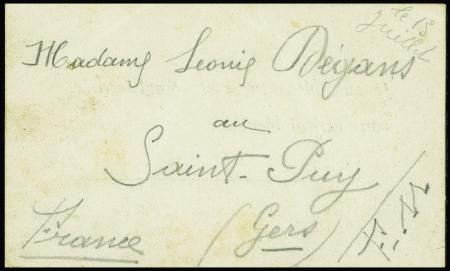 le 13
Juillet
Madame Leonie Dégans
au
Saint-Puy
(Gers)
France
F.M